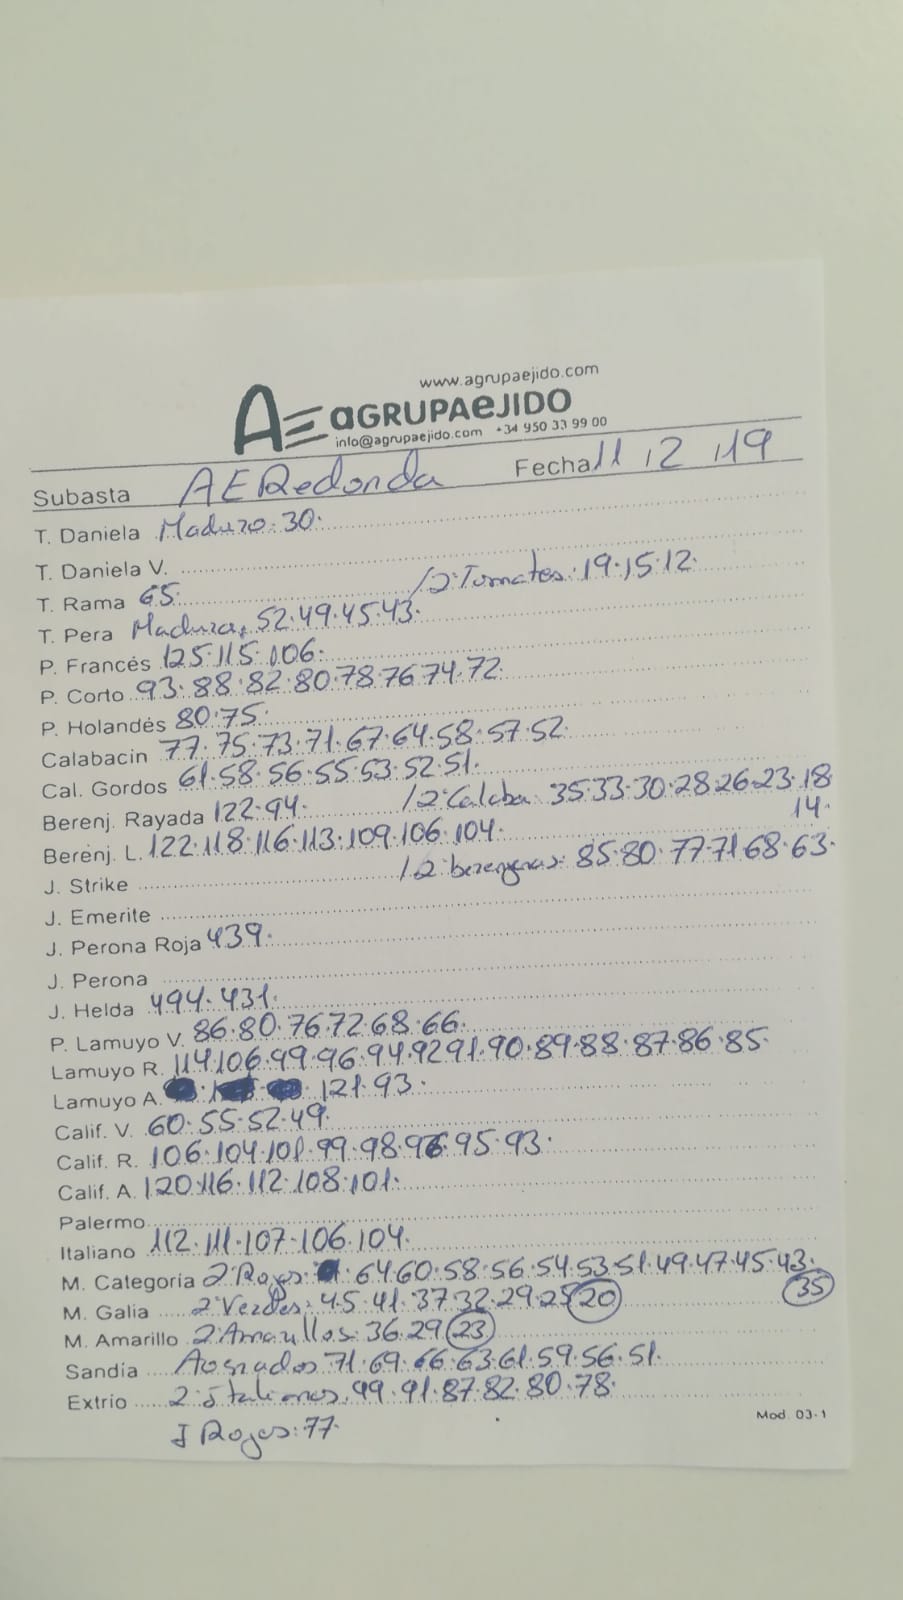 www.agrupaejido.com
AE aGRUPAeJIDO
info@agrupaejido.com +34 950 33 99 00
Subasta AE Redonda Fecha 11 12 19
T. Daniela Maduro: 30.
T. Daniela V.
T. Rama 65. / 2ª Tomates: 19.15.12.
T. Pera Madura, 52.49.45.43.
P. Francés 125.115.106.
P. Corto 93.88.82.80.78.76.74.72.
P. Holandés 80.75.
Calabacin 77.75.73.71.67.64.58.57.52.
Cal. Gordos 61.58.56.55.53.52.51.
Berenj. Rayada 122.94. / 2ª Calaba: 35.33.30.28.26.23.18
14.
Berenj. L. 122.118.116.113.109.106.104.
J. Strike / 2ª berengenas: 85.80.77.71.68.63.
J. Emerite
J. Perona Roja 439.
J. Perona
J. Helda 494.431.
P. Lamuyo V. 86.80.76.72.68.66.
Lamuyo R. 114.106.99.96.94.92.91.90.89.88.87.86.85.
Lamuyo A. 121.93.
Calif. V. 60.55.52.49.
Calif. R. 106.104.101.99.98.96.95.93.
Calif. A. 120.116.112.108.101.
Palermo
Italiano 112.111.107.106.104.
M. Categoría 2ª Rojos: 64.60.58.56.54.53.51.49.47.45.43.
35
M. Galia 2ª Verdes: 45.41.37.32.29.25 20
M. Amarillo 2ª Amarillos: 36.29 23
Sandía Asurados 71.69.66.63.61.59.56.51.
Extrio 2ª Italianos. 99.91.87.82.80.78.
I Rojos: 77.
Mod. 03-1